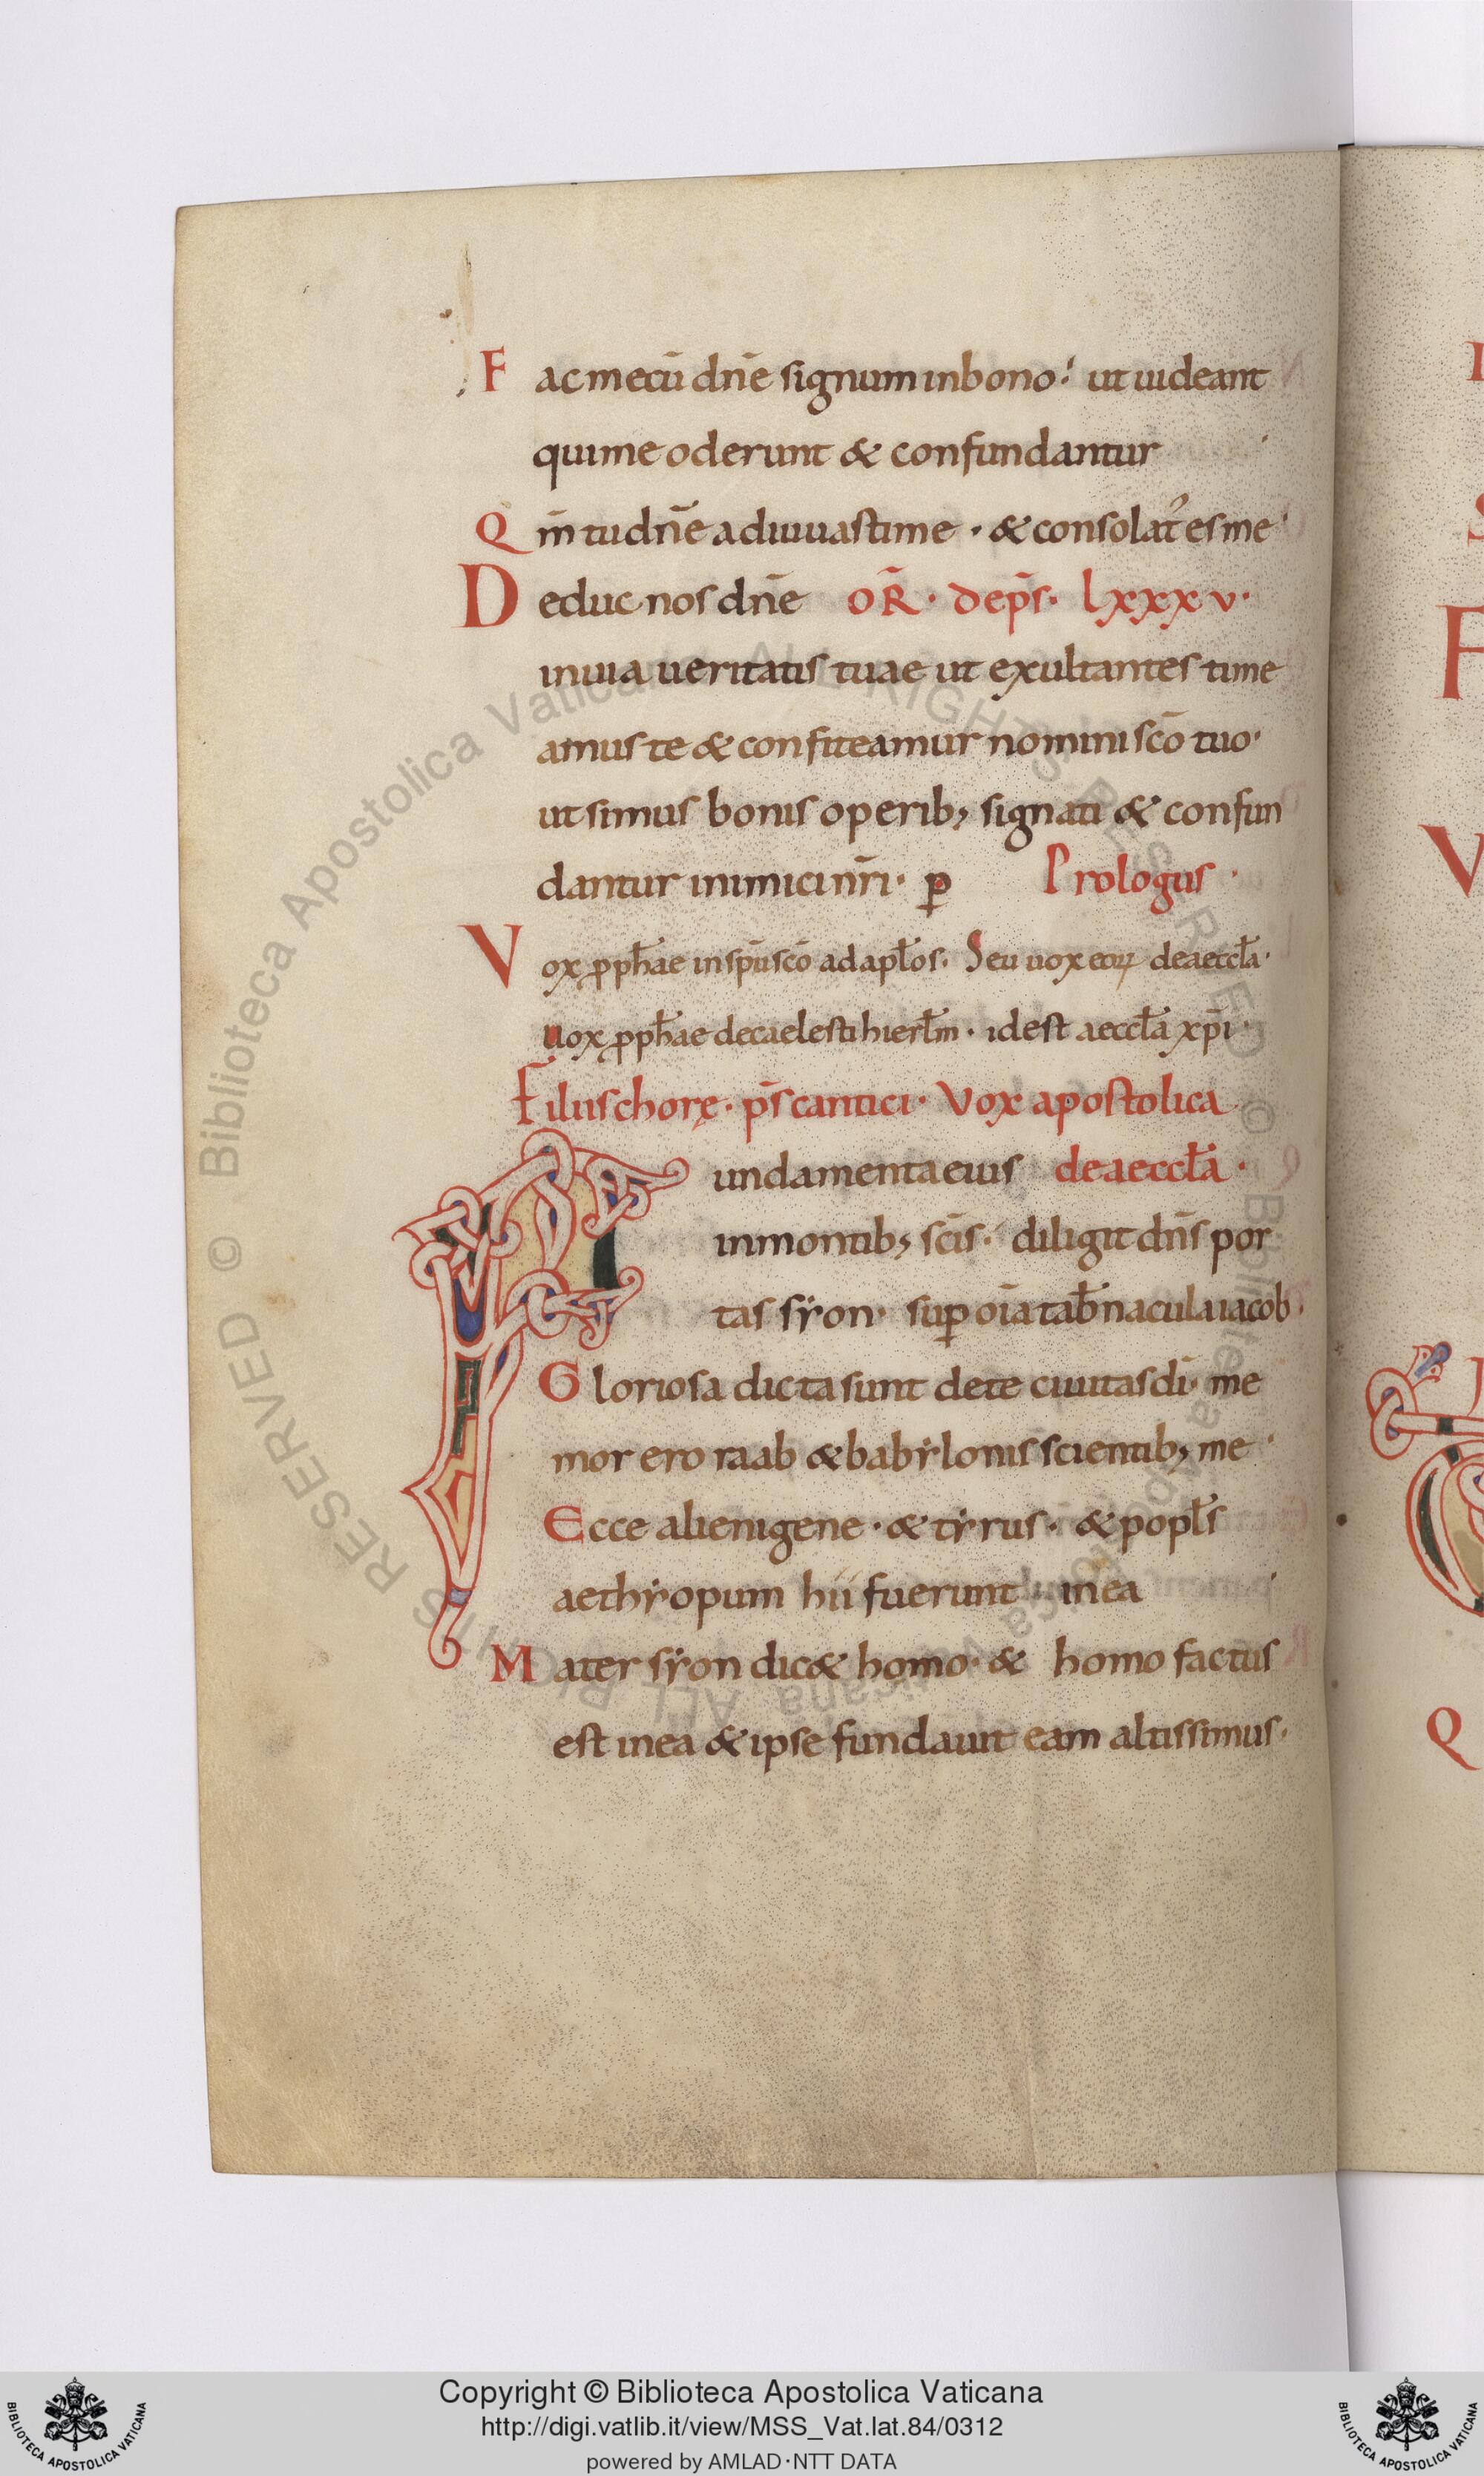 Fac mecū dn̄e signum in bono⁏ ut uideant
qui me oderunt & confundantur
Qm̄ tu dn̄e adiuuasti me · & consolat᾿ es me
Deduc nos dn̄e OR̄ · de ps̄ · lxxxv ·
in uia ueritatis tuae ut exultantes time
amus te & confiteamur nomini sc̄o tuo ·
ut simus bonis operib; signati & confun
dantur inimici nr̄i · ꝑ Prologus ·
Vox ꝓph̄ae in sp̄u sc̄o ad apl̄os · Seu uox eoꝝ de aeccl̄a ·
uox ꝓph̄ae de caelesti hierl̄m · id est aeccl̄a xp̄i ·
Filiis chorę · ps̄ cantici · Vox apostolica
Fundamenta eius de aeccl̄a ·
in montib; sc̄is · diligit dn̄s por
tas sẏon · suꝑ om̄ia tab̄nacula iacob ·
Gloriosa dicta sunt de te ciuitas dī · me
mor ero raab & babẏlonis scientib; me
Ecce alienigene · & tẏrus · & popl̄s
aethẏopum hii fuerunt in ea
Mater sẏon dic& homo · & homo factus
est in ea & ipse fundauit eam altissimus ·
Copyright © Biblioteca Apostolica Vaticana
http://digi.vatlib.it/view/MSS_Vat.lat.84/0312
powered by AMLAD·NTT DATA